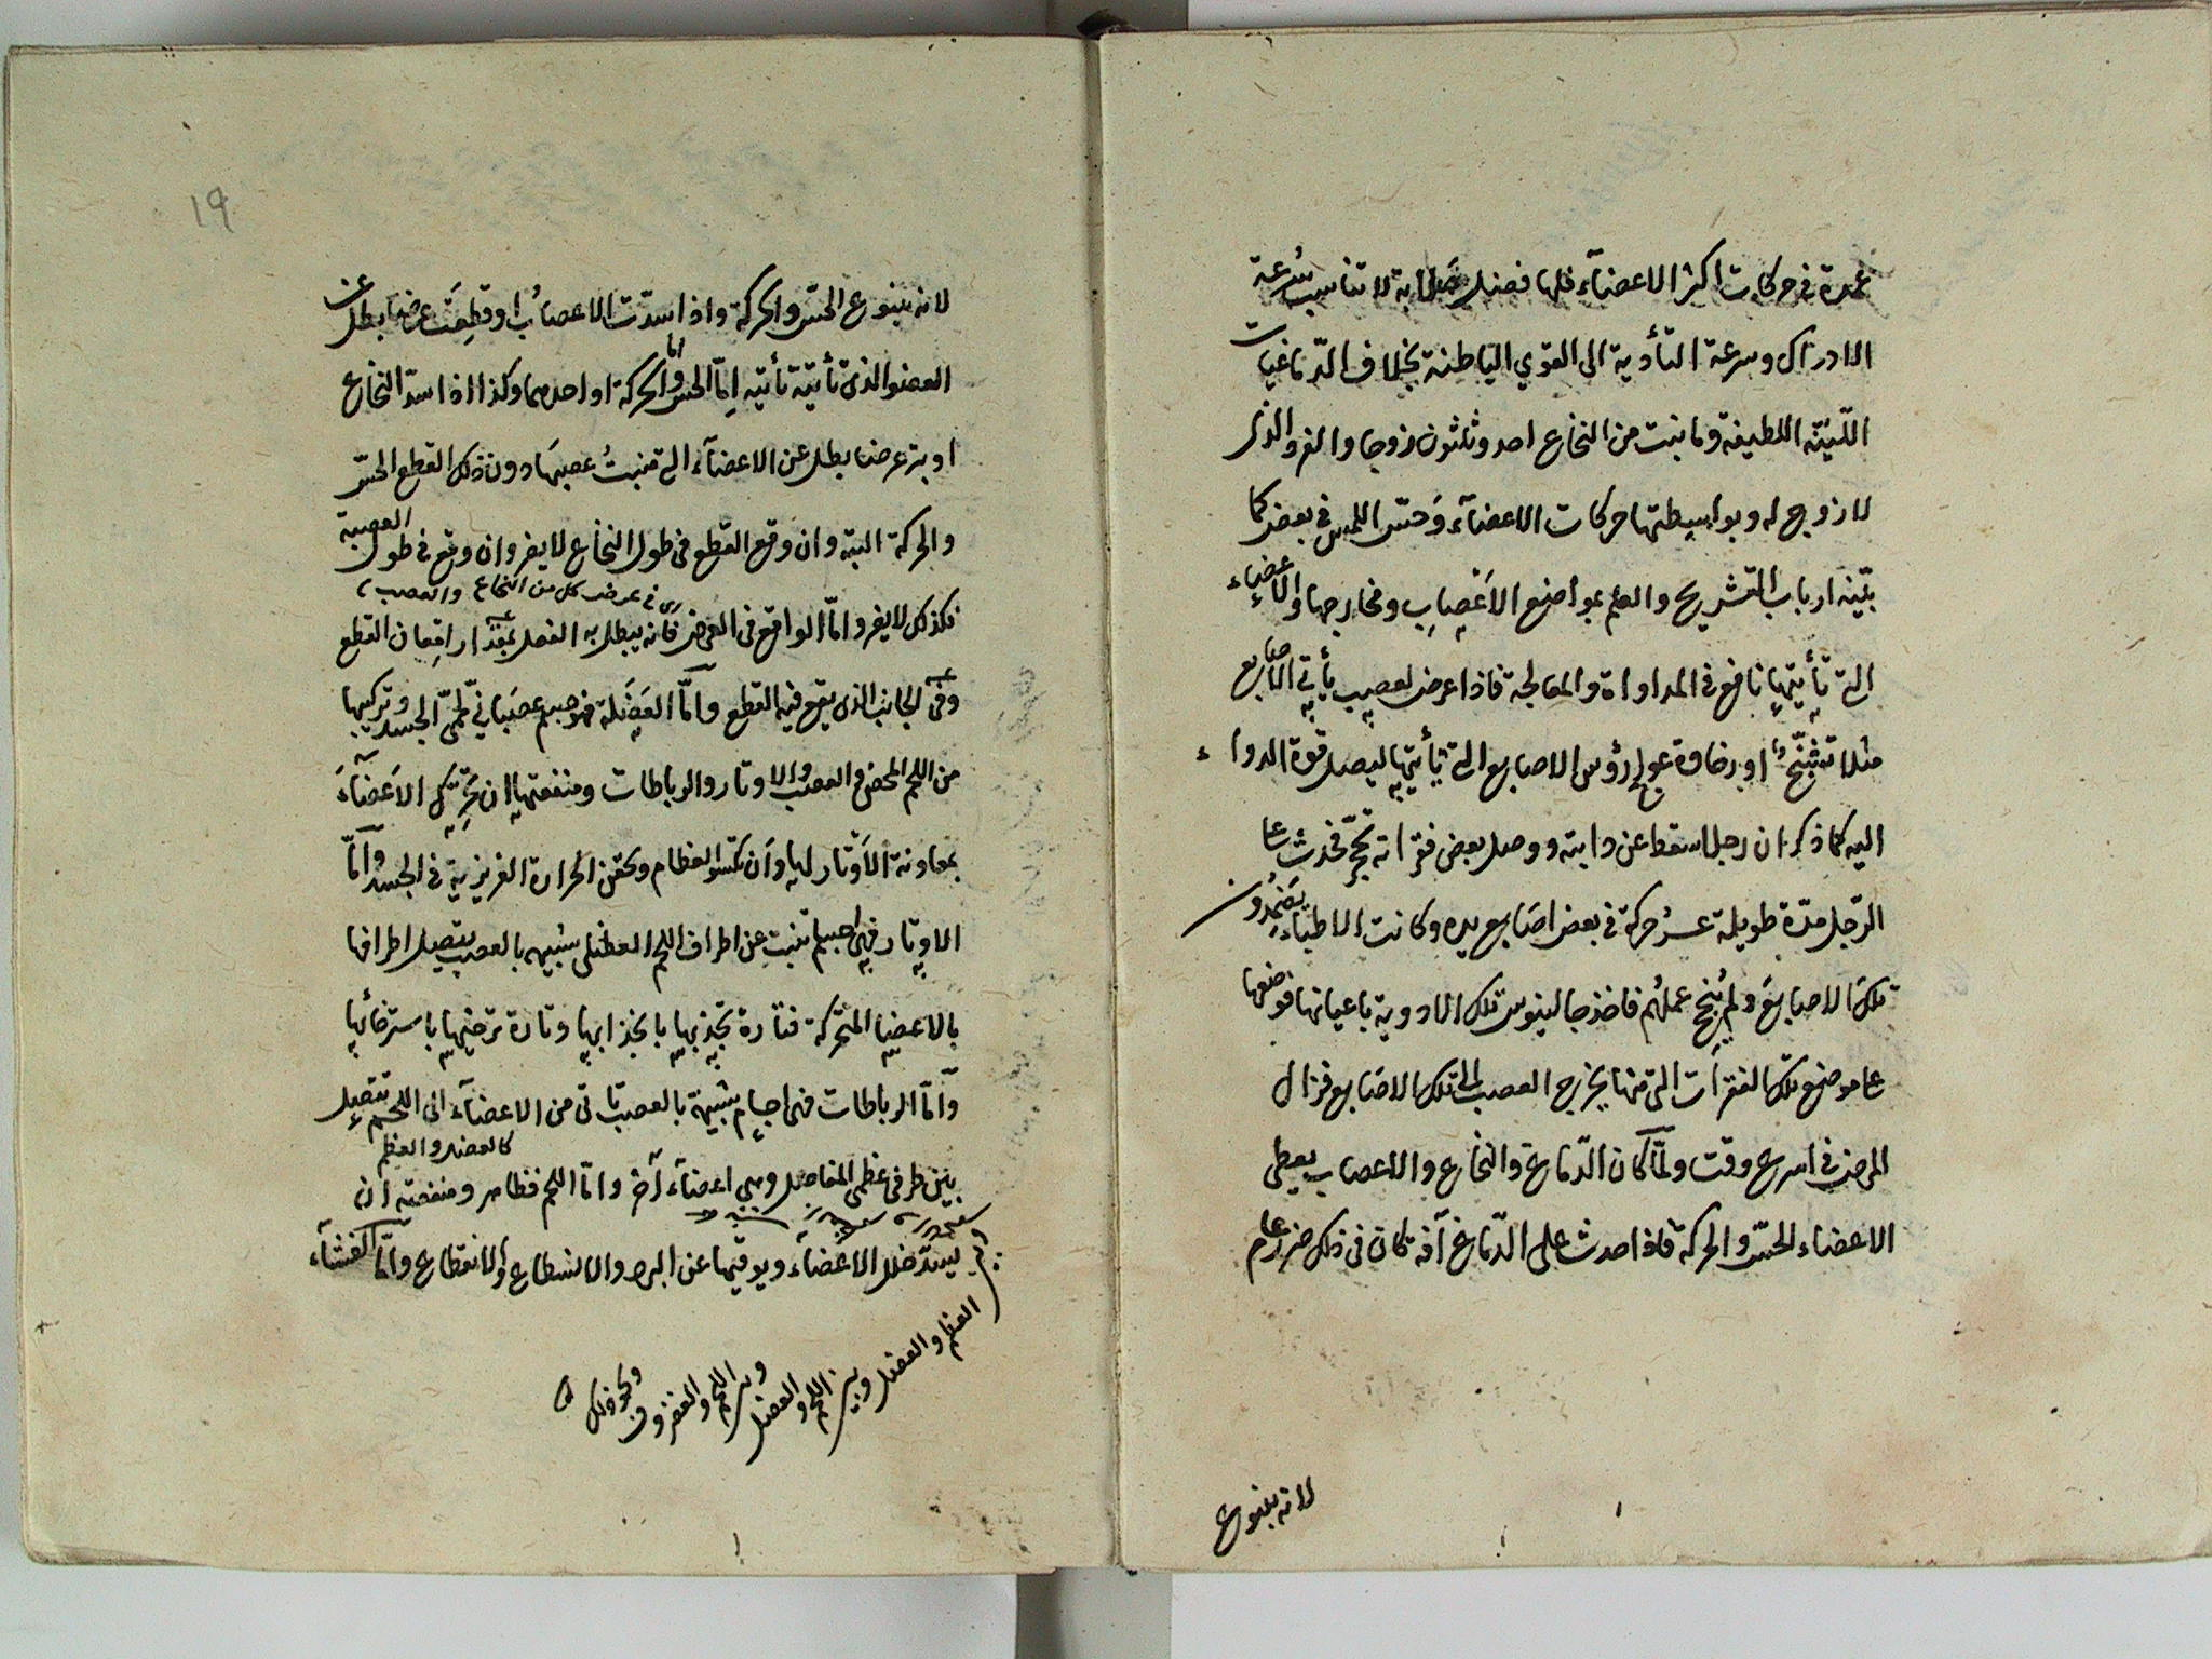 عمدة في حركات اكثر الاعضآء فلها فضل صلابة لا تناسب سُرعة
الادراك وسرعة التأدية الى القوي الباطنة بخلاف الدّماغيات
الليّنة اللطيفة وما ينبت من النخاع احد وثلثون زوجا والفرد الذى
لا زوج له وبواسطتها حركات الاعضآء وَحسّ اللمس في بعض كما
بيّنه ارباب التشريح والعلم بمواضع الاَعْصابِ ومخارجها والاعضاء
التے تأتيها نافع في المداواة والمعالجة فاذا عرض لعصب يأتي الاصابع
مثلا تشنّج او رخاوة عولج رؤس الاصابع التے يأتيها ليصل قوة الدواء
اليه كما ذكر ان رجلا سقط عن دابته ووصل بعض فقراته حجر فحدث عا
الرّجل مدّة طويلة عسُر حركة في بعض اصَابع يده وكانت الاطباء يضمِدُون
تلك الاصابعَ ولم يُنجح عملُهم فاخذ جالينوس تلك الادوية باعيانها فوضعها
عا موضع تلك الفقرآت التى منها يخرج العصب الى تلك الاصَابع فزال
المرض في اسرع وقت ولمّا كان الدّماغ والنخاع والاعصاب يعطى
الاعضاء الحسّ والحركة فاذا حدث على الدّماغ آفة كان فى ذلك ضرر عام
لانه ينبوع
١٩
لانه ينبوع الحسّ والحركة واذا سدّت الاعصابُ او قطِعَتْ عرضا بطل عن
العضو الذى تأتيه امّا الحسّ واما الحركة او احدهما وكذا اذا سدّ النخاع
او بتر عرضا بطل عن الاعضآء التے منبتُ عصبها دون ذلك القطع الحسّ
والحركة البتة وان وقع القطع فى طول النخاع لا يضر وان وقع في طول العصبة
اى في عرض كل من النخاع والعصب
فكذلك لا يضر وامّا الواقع فى العرض فانه يبطل به الفعل بمقدار امعان القطع
وفى الجانب الذى يقع فيه القطع وَامّا العَضَلة فهو جسم عصَبانيّ لحميّ الجسد وتركيبها
من اللحم المحض والعصب والاوتار والرباطات ومنفعتها ان تحرّك الاَعضآءَ
بمعاونة الاَوتار لها وَان تكسو العظام وتحقن الحرارة الغريزية في الجسد وَامّا
الاوتار فهى اجسام تنبت عن اطراف اللحم العضلى شبيهة بالعصب يتصل اطرافها
بالاعضا المتحركة فتارة تجذبها بانجذابها وتارة ترخيها باسترخائها
وَامّا الرباطات فهى اجسام شبيهة بالعصب تاتى من الاعضآء الى اللحم تتصل
كالعضل والعظم
بين طرفى عظمى المفاصل وبين اعضآء اُخر وامّا اللحم فظاهر ومنفعته ان
يسدّ خلل الاعضآء ويوقيها عن البرد والانسطاع والانقطاع وامّا الغشآء
العظم والعضل وبين اللحم والعضل
وبين اللحم والغضروف
ونحو ذلك